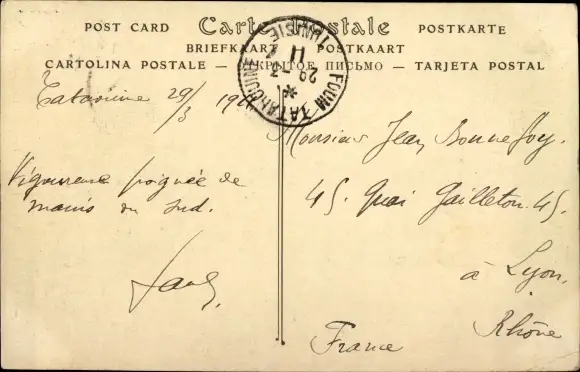 POST CARD Carte Postale POSTKARTE
BRIEFKAART POSTKAART
CARTOLINA POSTALE — ОТКРЫТОЕ ПИСЬМО — TARJETA POSTAL
FOUM-TATAHOUINE TUNISIE
29 - 3
11
Tatouine 29/3 1911
Vigoureuse poignée de
mains du Sud.
Monsieur Jean Bonnefoy.
45. Quai Gailleton 45.
à Lyon.
Rhône
France